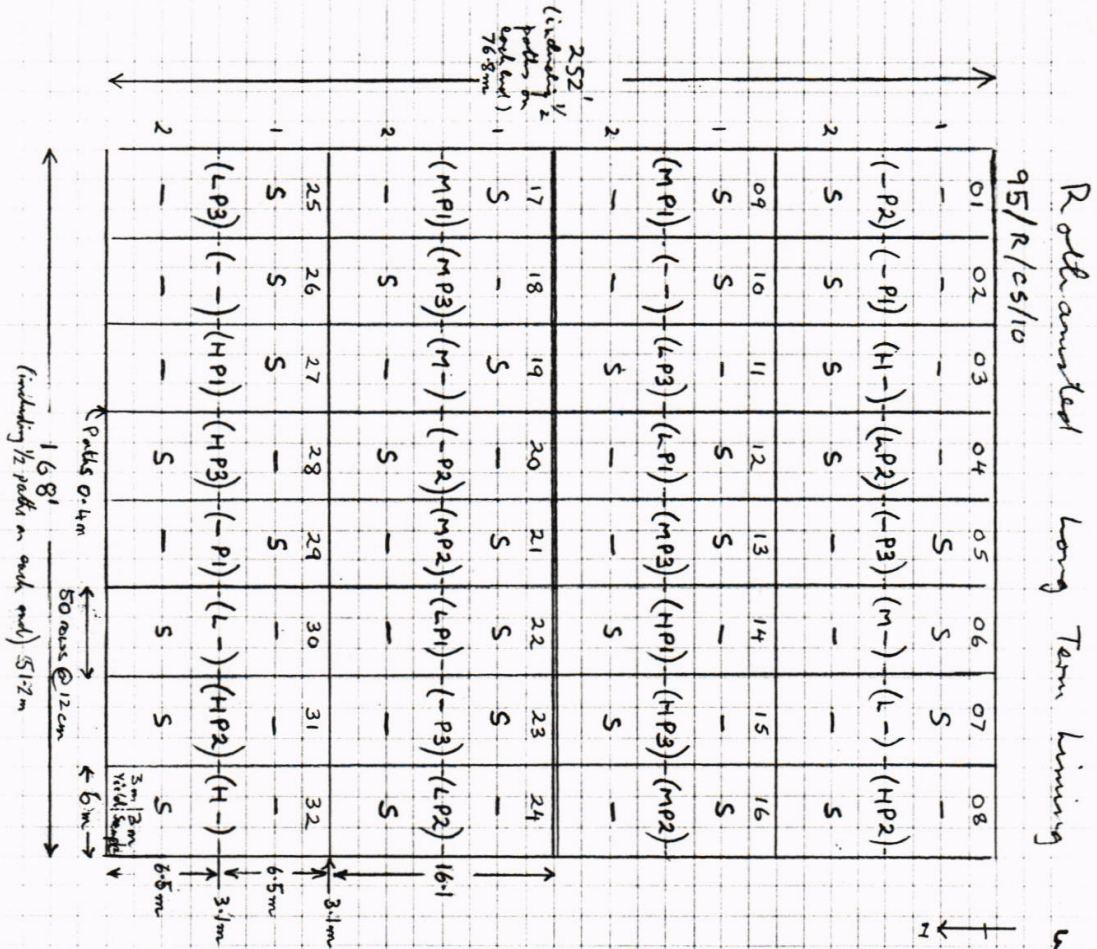 Rothamsted Long Term Liming
95/R/CS/10
01 02 03 04 05 06 07 08
1 - - - - S S S -
(-P2) (-P1) (H-) (LP2) (-P3) (M-) (L-) (HP2)
2 S S S S - - - S
09 10 11 12 13 14 15 16
1 S S - S S - - S
(MP1) (--) (LP3) (LP1) (MP3) (HP1) (HP3) (MP2)
2 - - S - - S S -
17 18 19 20 21 22 23 24
1 S - S - S S S -
(MP1) (MP3) (M-) (-P2) (MP2) (LP1) (-P3) (LP2)
2 - S - S - - - S
25 26 27 28 29 30 31 32
1 S S S - S - - -
(LP3) (--) (HP1) (HP3) (-P1) (L-) (HP2) (H-)
2 - - - S - S S S
252'
(including 1/2
paths on
each end)
76.8m
16.1
3.1m
6.5m
3.1m
6.5m
3m 3m
Yield
Paths 0.4m
50 rows @ 12cm
6m
168'
(including 1/2 paths on each end) 51.2m